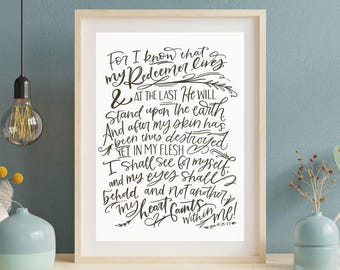 For I know that
my Redeemer lives
& AT THE LAST He will
stand upon the earth
And after my skin has
been thus destroyed
YET IN MY FLESH
I shall see for myself
and my eyes shall
behold, and not another
my heart faints
within me!